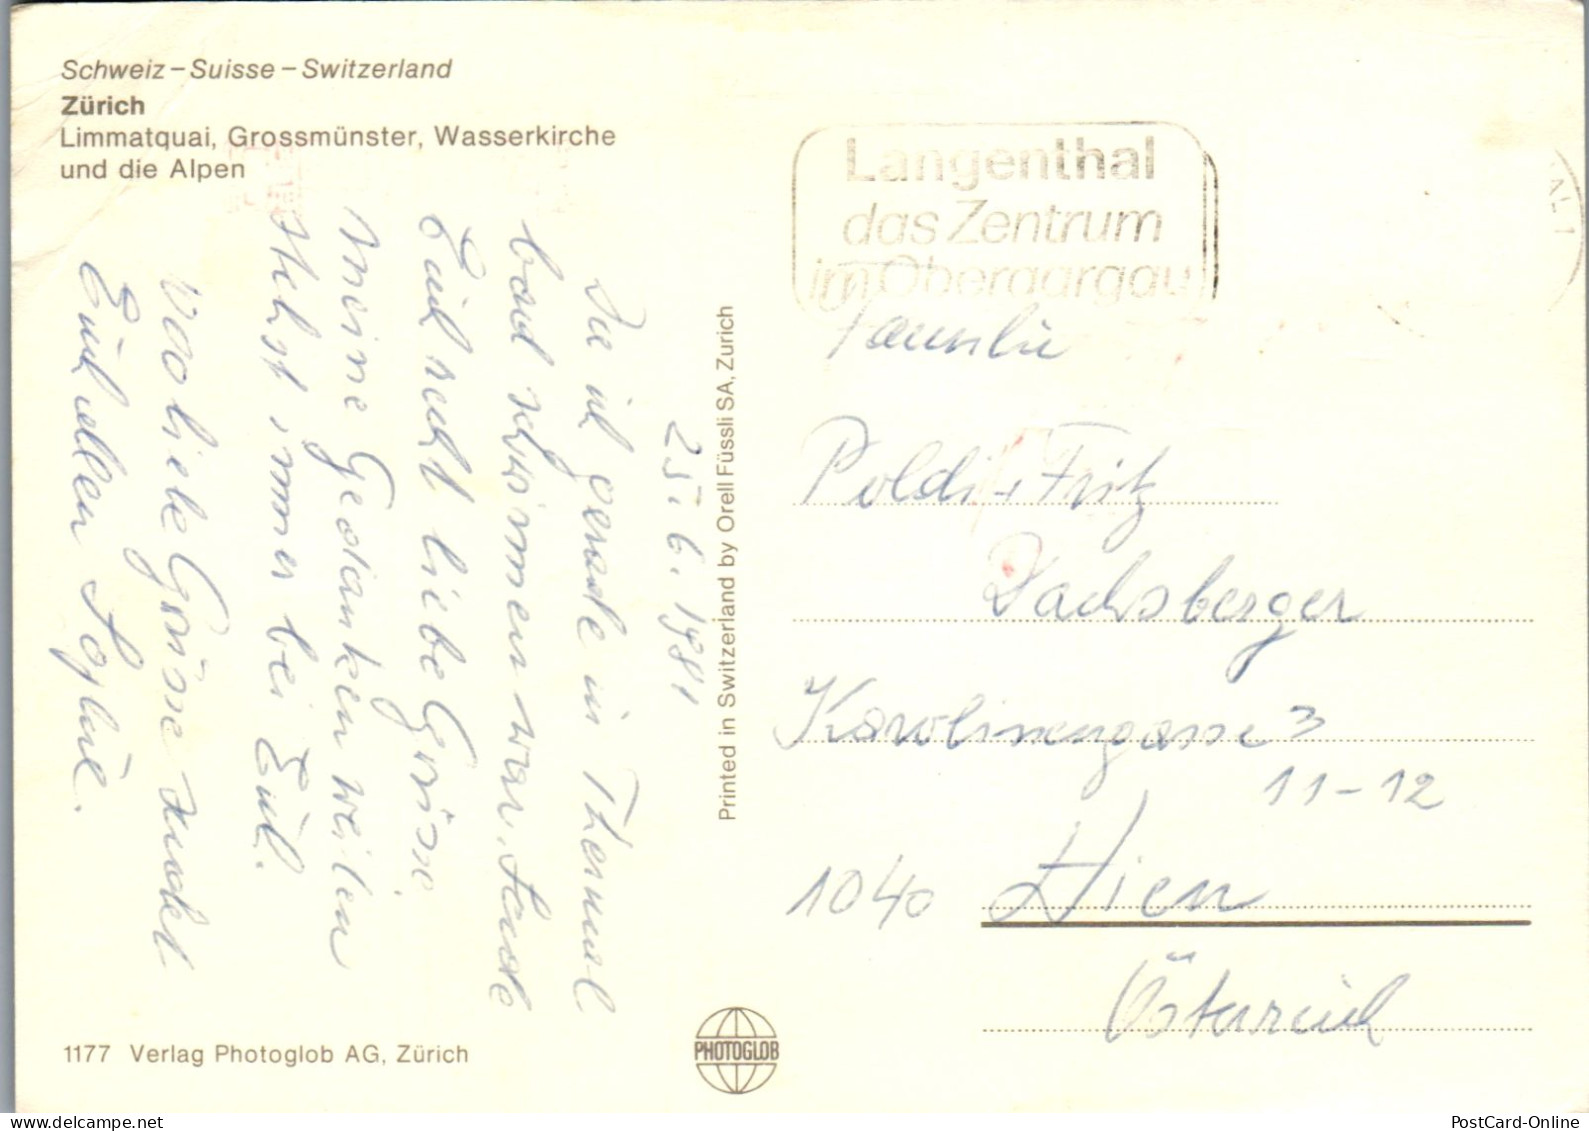 Schweiz – Suisse – Switzerland
Zürich
Limmatquai, Grossmünster, Wasserkirche
und die Alpen
25. 6. 1981
ich gerade in Thermal
bad schwimmen war, sende
Euch recht liebe Grüsse
Meine Gedanken weilen
stehst immer bei Euch.
liebe Grüsse sendet
Euch allen Sophie.
1177 Verlag Photoglob AG, Zürich
Printed in Switzerland by Orell Füssli SA, Zurich
PHOTOGLOB
Langenthal
das Zentrum
im Oberaargau
AL 1
Familie
Poldi + Fritz
Dachsberger
Karolinengasse 3
11-12
1040 Wien
Österreich
PostCard-Online